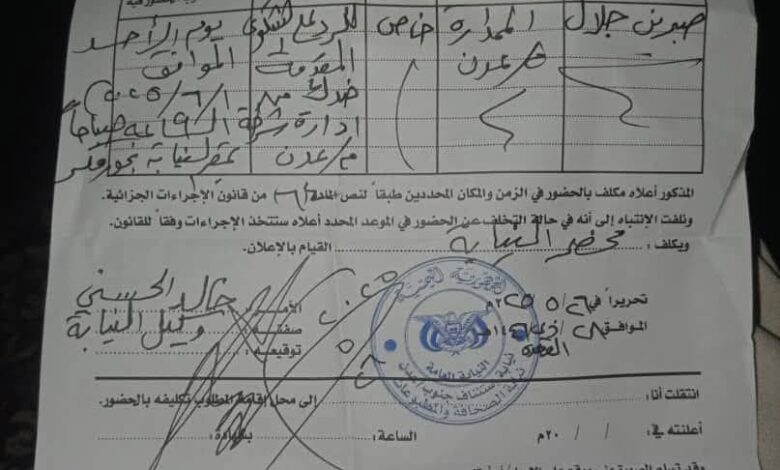 صبرين جلال
الممدارة م/عدن
خاص
للرد على الشكوى
المقدمة
ضدك من
ادارة شرطة
م/عدن
يوم الأحد
الموافق
١/٦/٢٠٢٥
الساعة ٩ صباحاً
بمقر النيابة بخورمكسر
المذكور أعلاه مكلف بالحضور في الزمن والمكان المحددين طبقاً لنص المادة من قانون الإجراءات الجزائية.
ونلفت الإنتباه إلى أنه في حالة التخلف عن الحضور في الموعد المحدد أعلاه ستتخذ الإجراءات وفقاً للقانون.
ويكلف : محضر النيابة القيام بالإعلان.
تحريراً في ٢٦/٥/٢٠٢٥م
الموافق ٢٨/ذي القعدة
الأسم: خالد الحسني
صفته: وكيل النيابة
توقيعه:
الجمهورية اليمنية
النيابة العامة
نيابة استئناف جنوب
نيابة الصحافة والمطبوعات
انتقلت أنا: إلى محل إقامة المطلوب تكليفه بالحضور.
أعلنته في: / / ٢٠م الساعة: